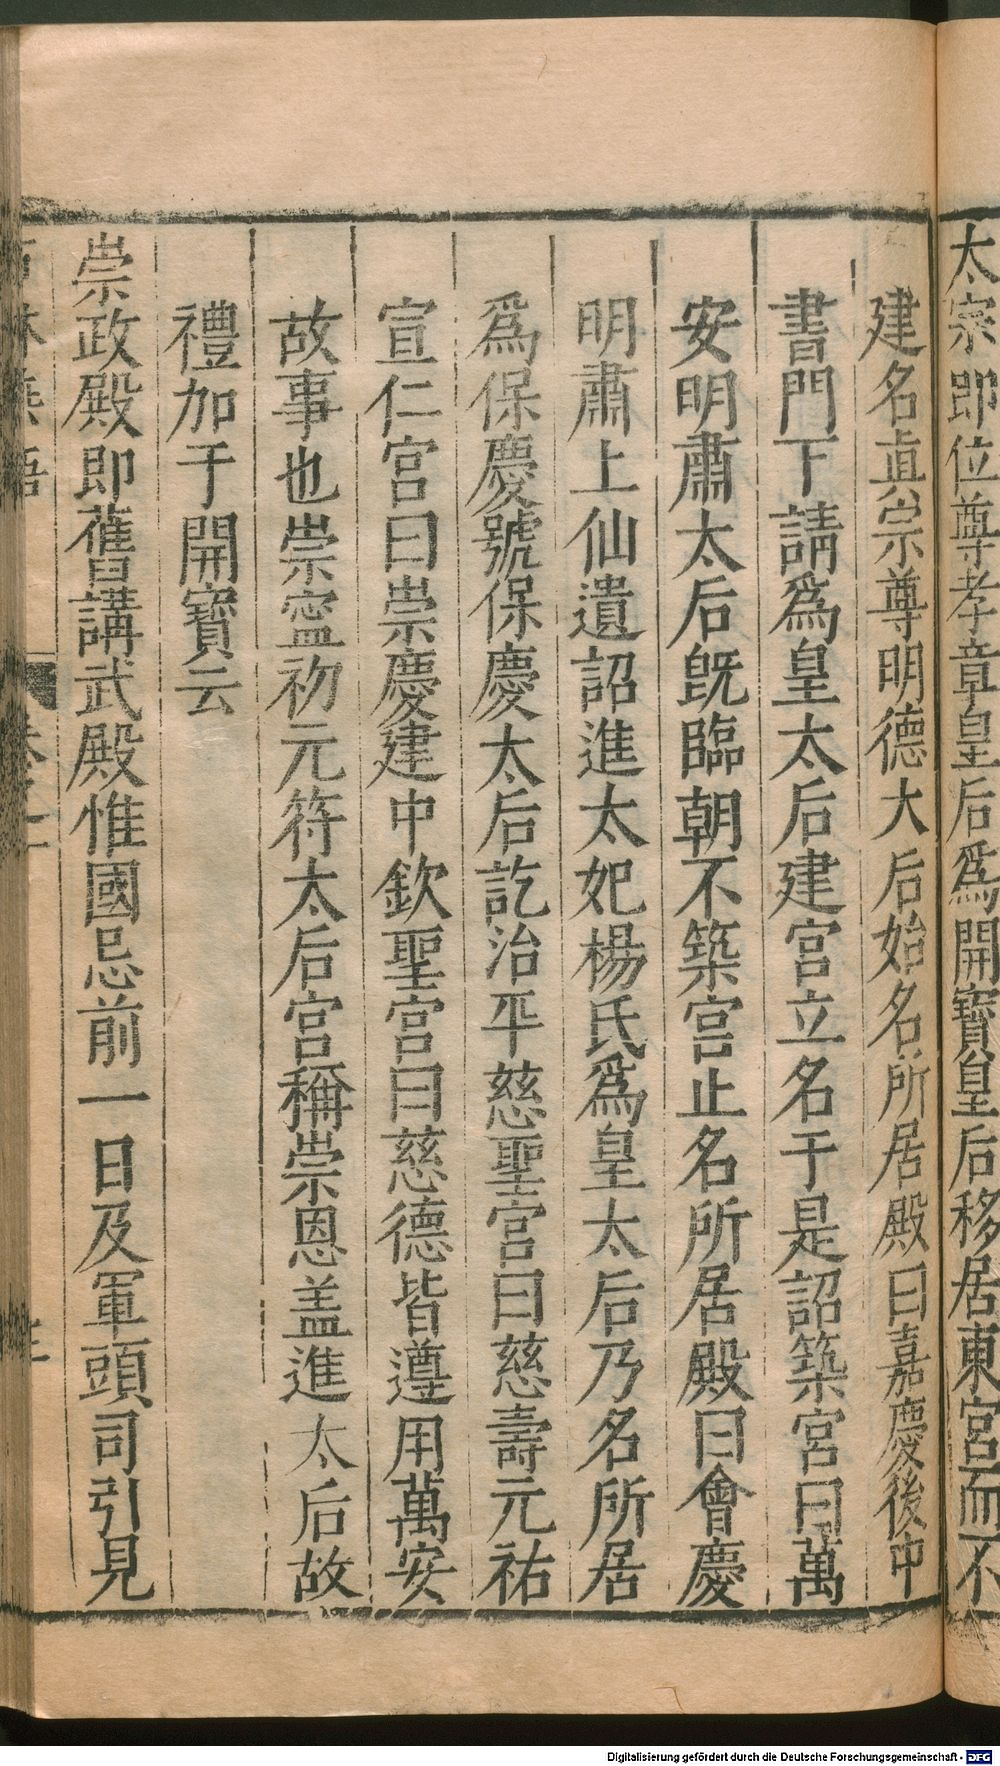 太宗即位尊孝章皇后爲開寶皇后移居東宮而不
建名眞宗尊明德大后始名所居殿曰嘉慶後中
書門下請爲皇太后建宮立名于是詔築宮曰萬
安明肅太后旣臨朝不築宮止名所居殿曰會慶
明肅上仙遺詔進太妃楊氏爲皇太后乃名所居
爲保慶號保慶太后訖治平慈聖宮曰慈壽元祐
宣仁宮曰崇慶建中欽聖宮曰慈德皆遵用萬安
故事也崇寧初元符太后宮稱崇恩盖進太后故
禮加于開寶云
崇政殿即舊講武殿惟國忌前一日及軍頭司引見
Digitalisierung gefördert durch die Deutsche Forschungsgemeinschaft - DFG